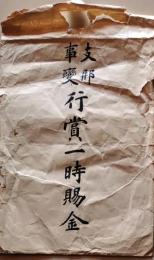 支那
事変
行賞一時賜金